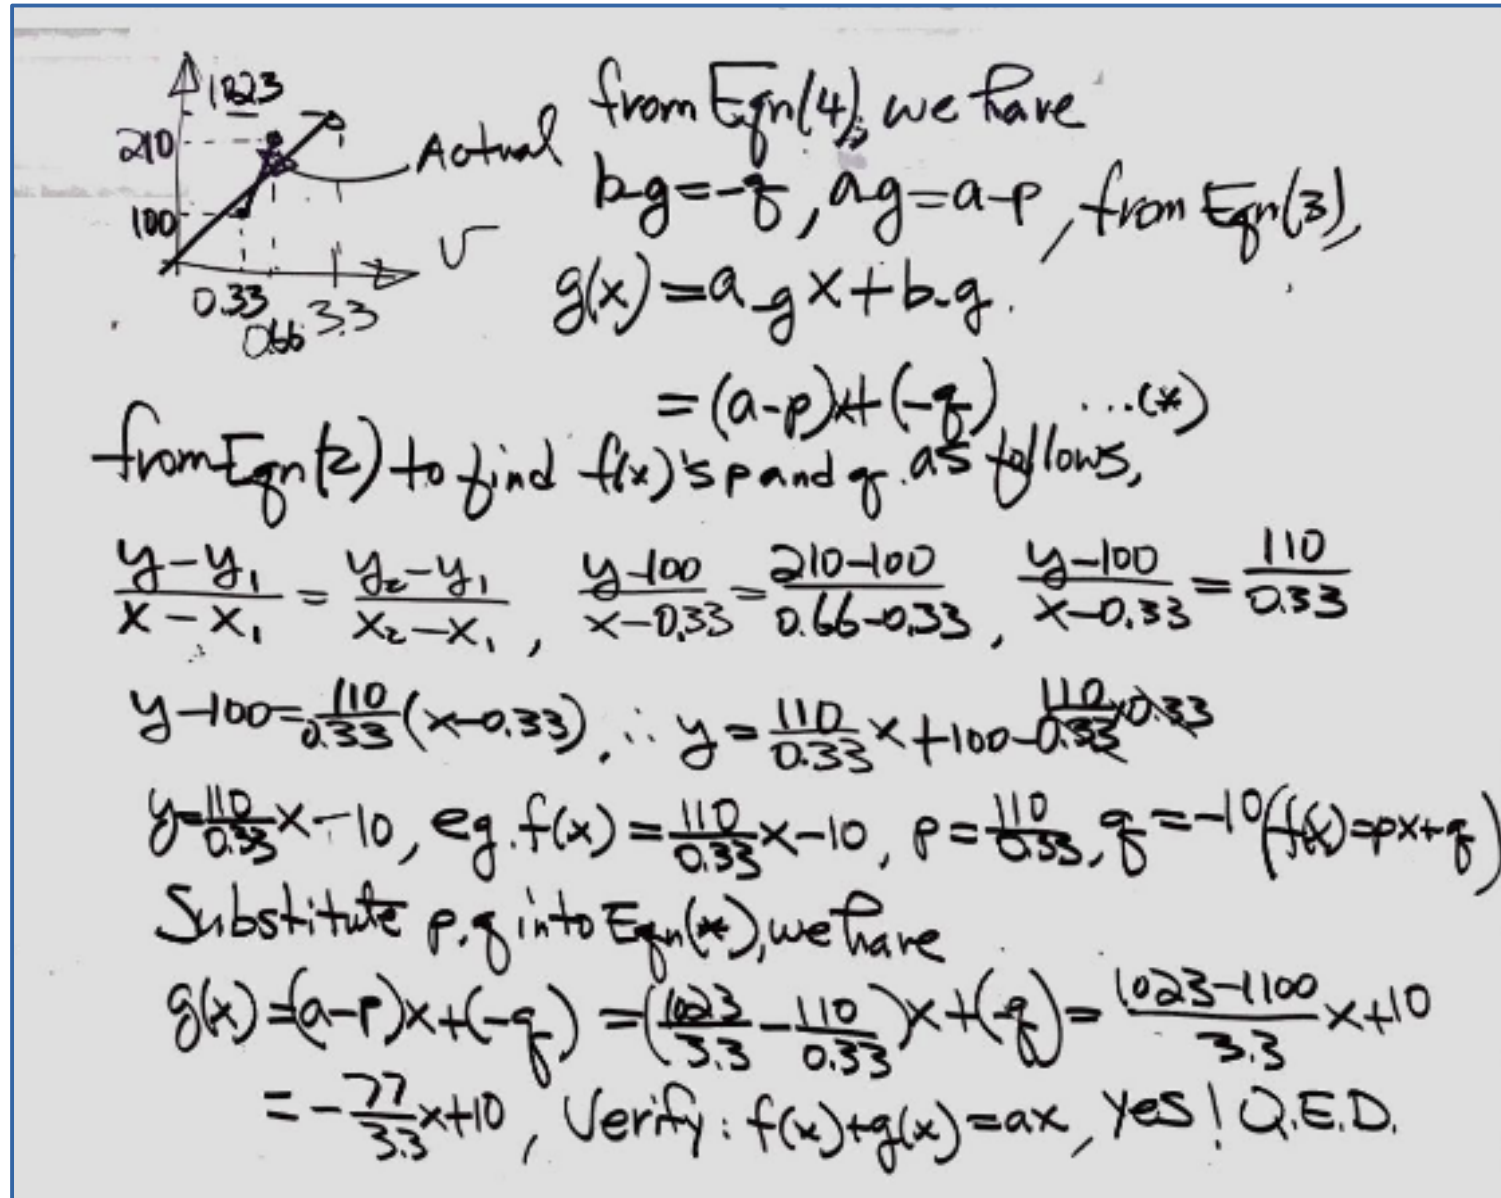 1023
210
Actual
100
V
0.33
0.66
3.3
from Eqn(4), we have
b-g=-q, a-g=a-p, from Eqn(3),
g(x)=a-g x+b-g.
=(a-p)x+(-q) ...(*)
from Eqn(2) to find f(x)'s p and q. as follows,
(y-y₁)/(x-x₁) = (y₂-y₁)/(x₂-x₁), (y-100)/(x-0.33) = (210-100)/(0.66-0.33), (y-100)/(x-0.33) = 110/0.33
y-100=110/0.33(x-0.33), ∴ y=110/0.33 x+100-110/0.33 x0.33
y=110/0.33 x-10, eg. f(x)=110/0.33 x-10, p=110/0.33, q=-10(f(x)=px+q)
Substitute p,q into Eqn(*), we have
g(x)=(a-p)x+(-q)=(1023/3.3-110/0.33)x+(-q)=(1023-1100)/3.3 x+10
=-77/3.3 x+10, Verify: f(x)+g(x)=ax, yes! Q.E.D.